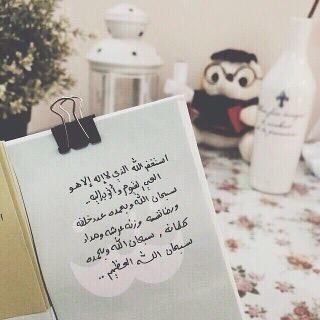 استغفر الله الذي لا إله إلا هو
الحي القيوم وأتوب إليه
سبحان الله وبحمده عدد خلقه
ورضا نفسه وزنة عرشه ومداد
كلماته , سبحان الله وبحمده
سبحان الله العظيم ..